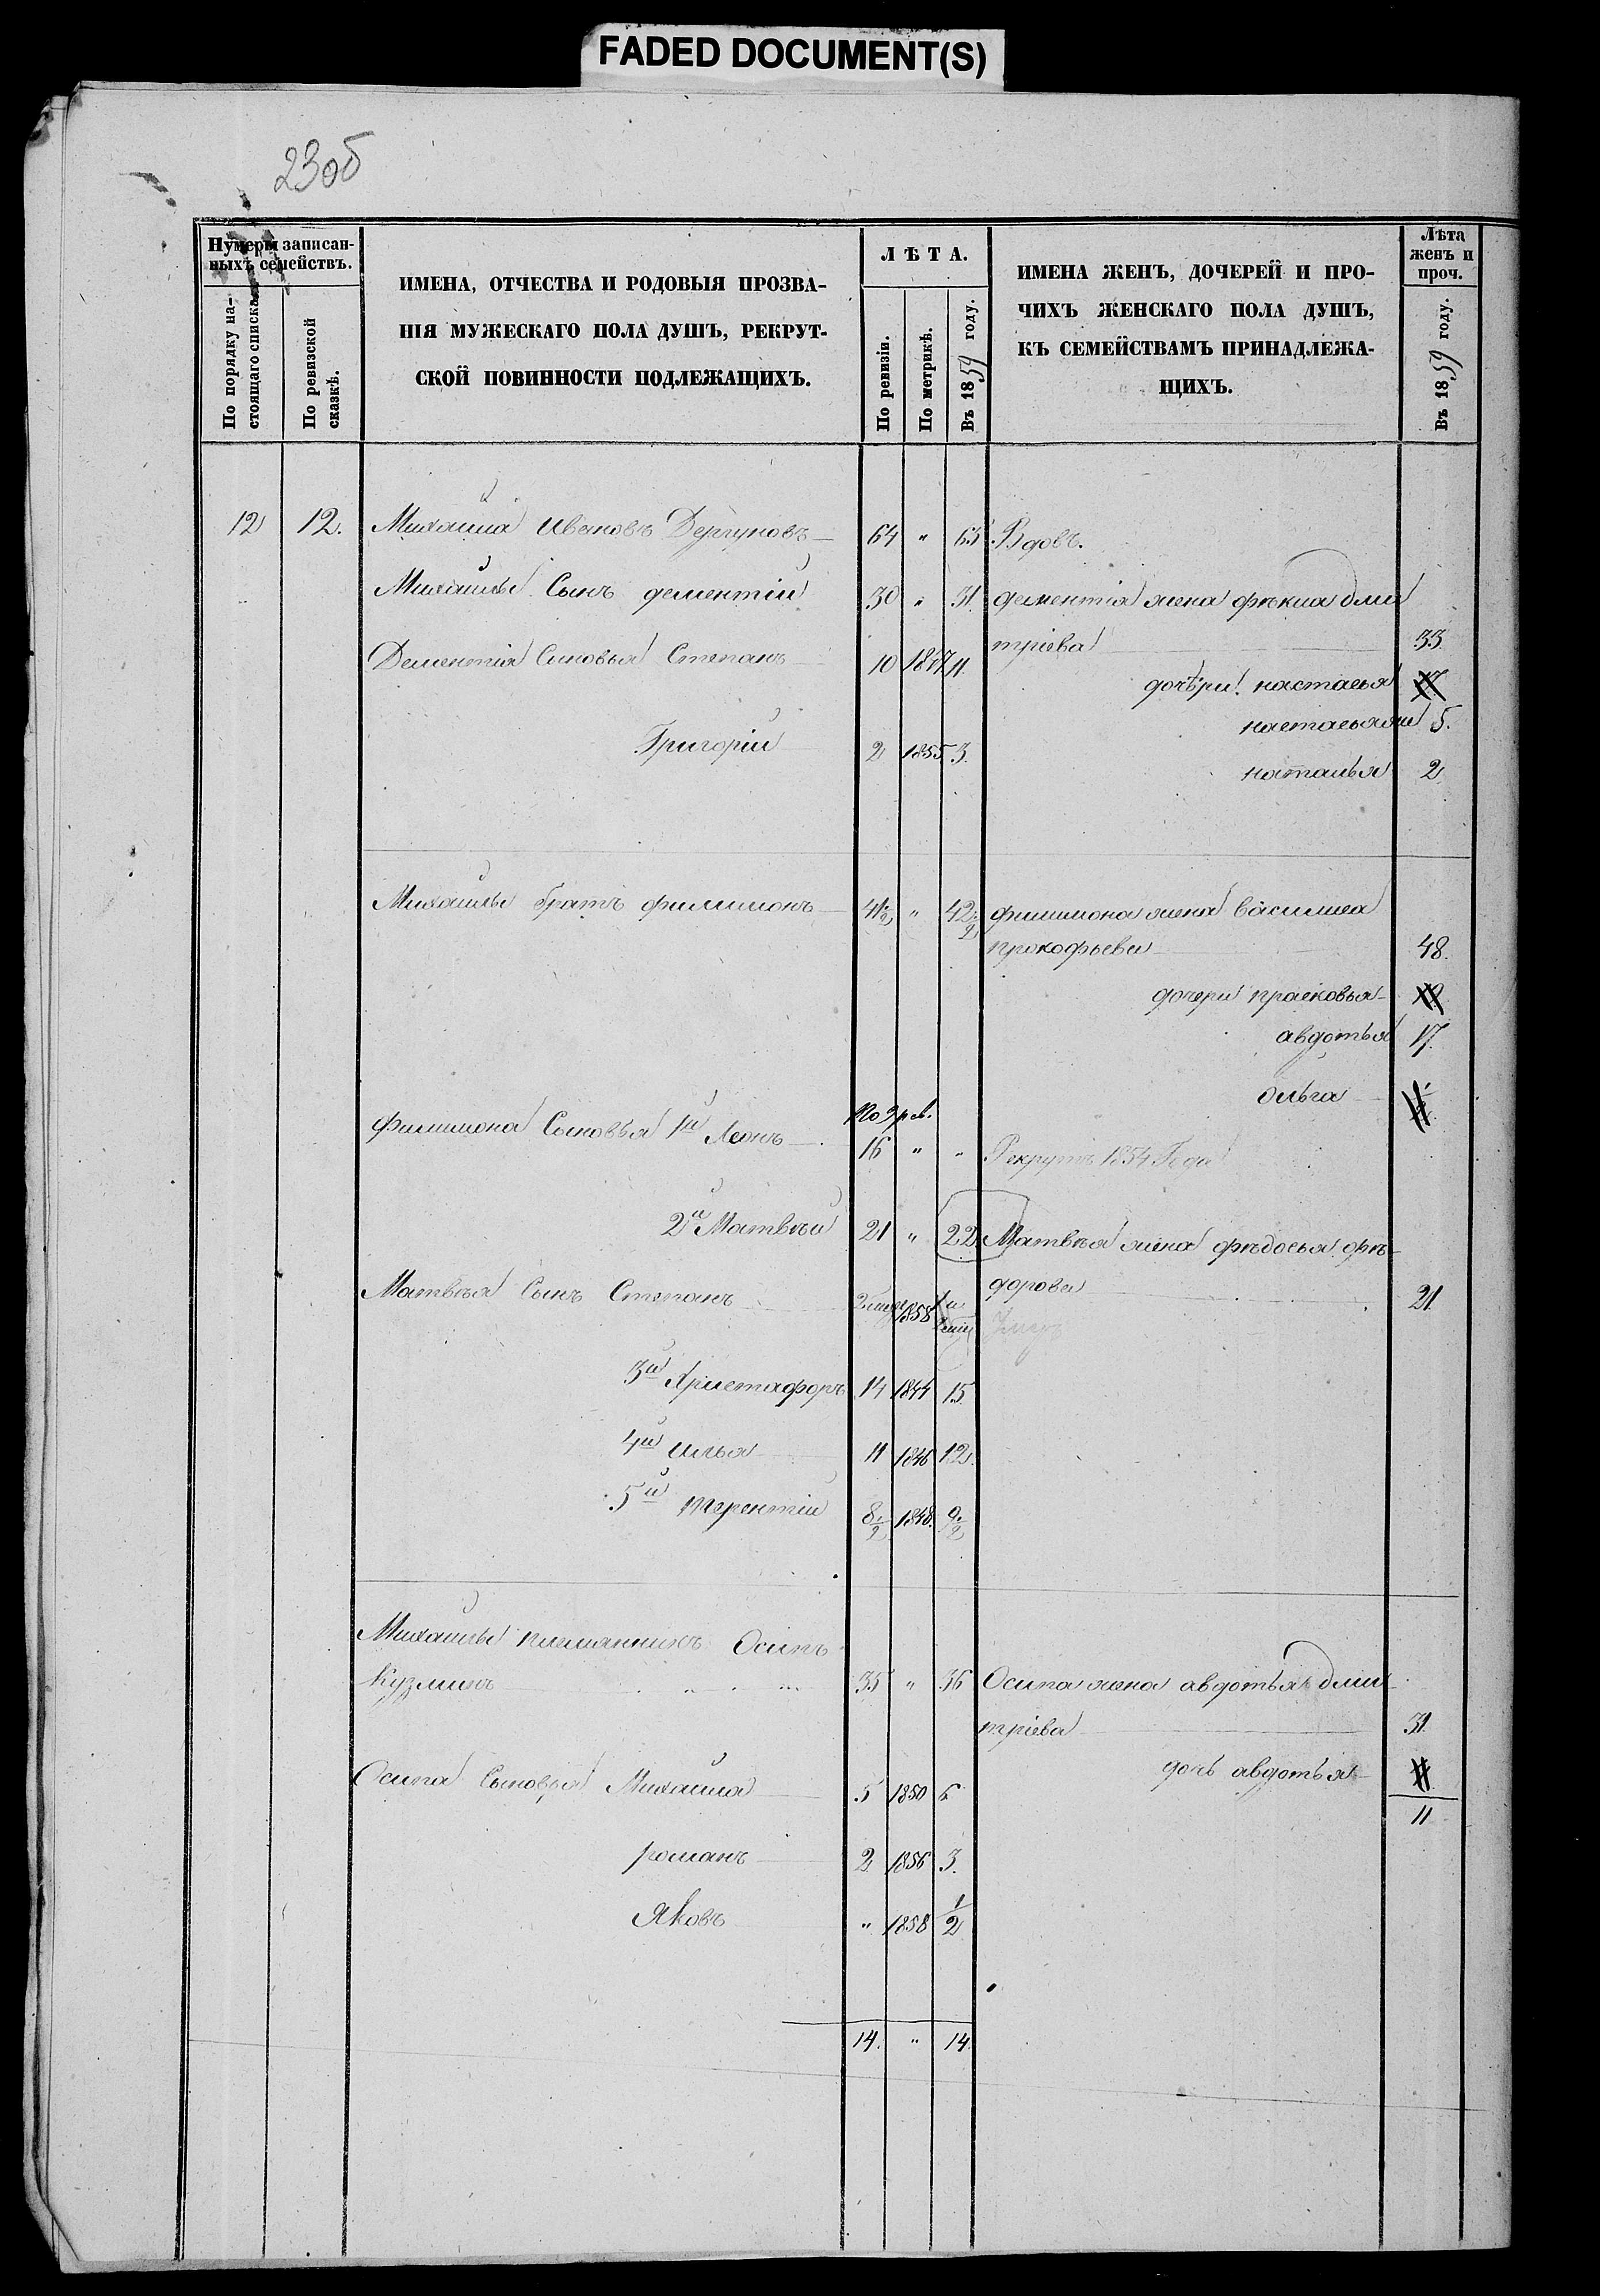 FADED DOCUMENT(S)
23об
Нумеры записан-
ныхъ семействъ.
По порядку на-
стоящаго списка.
По ревизской
сказкѣ.
ИМЕНА, ОТЧЕСТВА И РОДОВЫЯ ПРОЗВА-
НІЯ МУЖЕСКАГО ПОЛА ДУШЪ, РЕКРУТ-
СКОЙ ПОВИННОСТИ ПОДЛЕЖАЩИХЪ.
ЛѢТА.
По ревизіи.
По метрикѣ.
Въ 1859 году.
ИМЕНА ЖЕНЪ, ДОЧЕРЕЙ И ПРО-
ЧИХЪ ЖЕНСКАГО ПОЛА ДУШЪ,
КЪ СЕМЕЙСТВАМЪ ПРИНАДЛЕЖА-
ЩИХЪ.
Лѣта
женъ и
проч.
Въ 1859 году.
12 12. Михайла Ивановъ Дергуновъ 64 " 65 Вдовъ.
Михайлы Сынъ дементій 30 " 31. дементія жена фѣкла дми
тріева 33
Дементія Сыновья Степанъ 10 1847 11.
дочѣри настасья
настасья же 5.
Григорій 2 1855 3.
наталья 2
Михайлы братъ филимонъ 41½ " 42½ филимона жена василиса
прокофьева 48.
дочери прасковья
авдотья 17.
ольга
По 9 рев.
филимона Сыновья 1й Леонъ 16 " " Рекрутъ 1854 Года
2й Матвѣй 21 " 22 Матвѣя жена фѣдосья фѣ-
дорова 21
Матвѣя Сынъ Степанъ 1858 Умеръ
3й Христафоръ 14 1844 15
4й илья 11 1846 12.
5й терентій 8½ 1848. 9½
Михайлы племянникъ Осипъ
Кузминъ 35 " 36 Осипа жена авдотья дми
тріева 31
Осипа Сыновья Михайла 5 1850 6
дочь авдотья
11
романъ 2 1856 3.
Яковъ " 1858 ½
14. " 14.